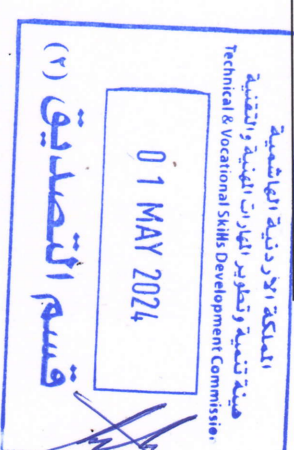 المملكة الاردنية الهاشمية
هيئة تنمية وتطوير المهارات المهنية والتقنية
Technical & Vocational Skills Development Commission
0 1 MAY 2024
قسم التصديق (٢)